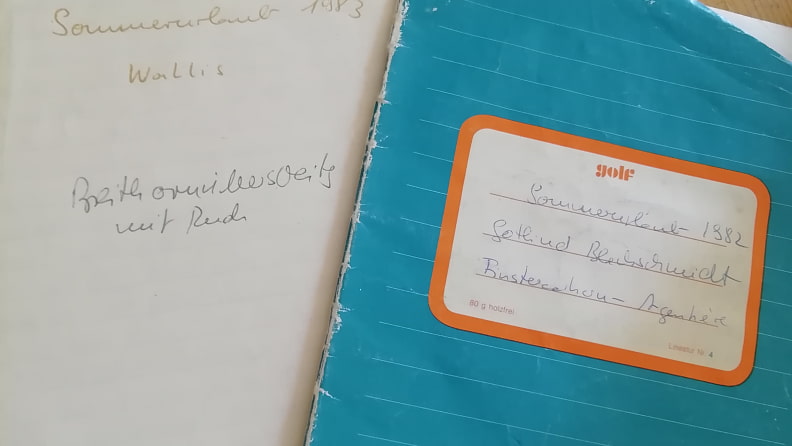 Sommerurlaub 1983
Wallis
Breithornüberschreitg
mit Rudi
golf
Sommerurlaub 1982
Gotlind Blechschmidt
Argentière
80 g holzfrei
Lineatur Nr. 4